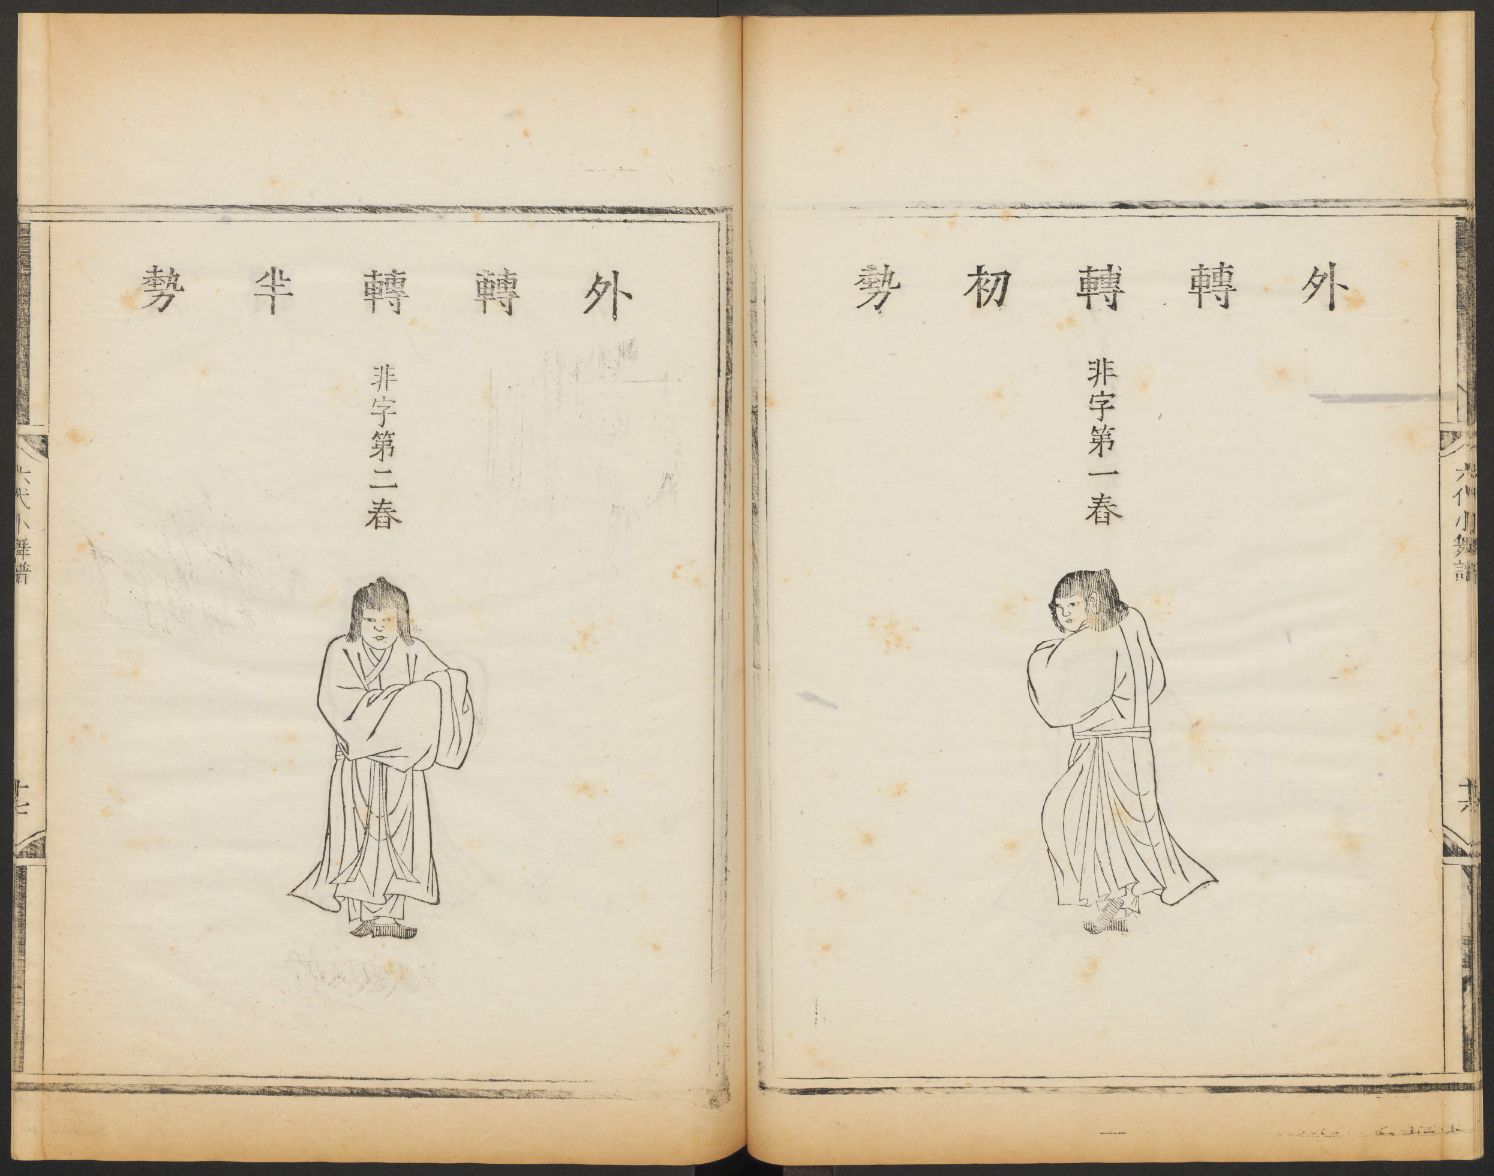 外轉轉初勢
非字第一舂
六代小舞譜
外轉轉半勢
非字第二舂
六代小舞譜
十七